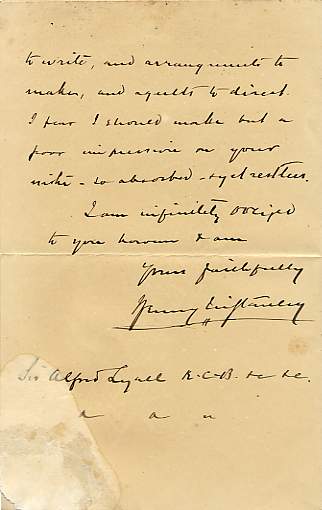 to write, and arrangements to
make, and agents to direct.
I fear I should make but a
poor impression on your
niece - so absorbed - yet restless.
I am infinitely obliged
to you honour & am
Yours faithfully
Henry M Stanley
Sir Alfred Lyall K.C.B. &c &c.